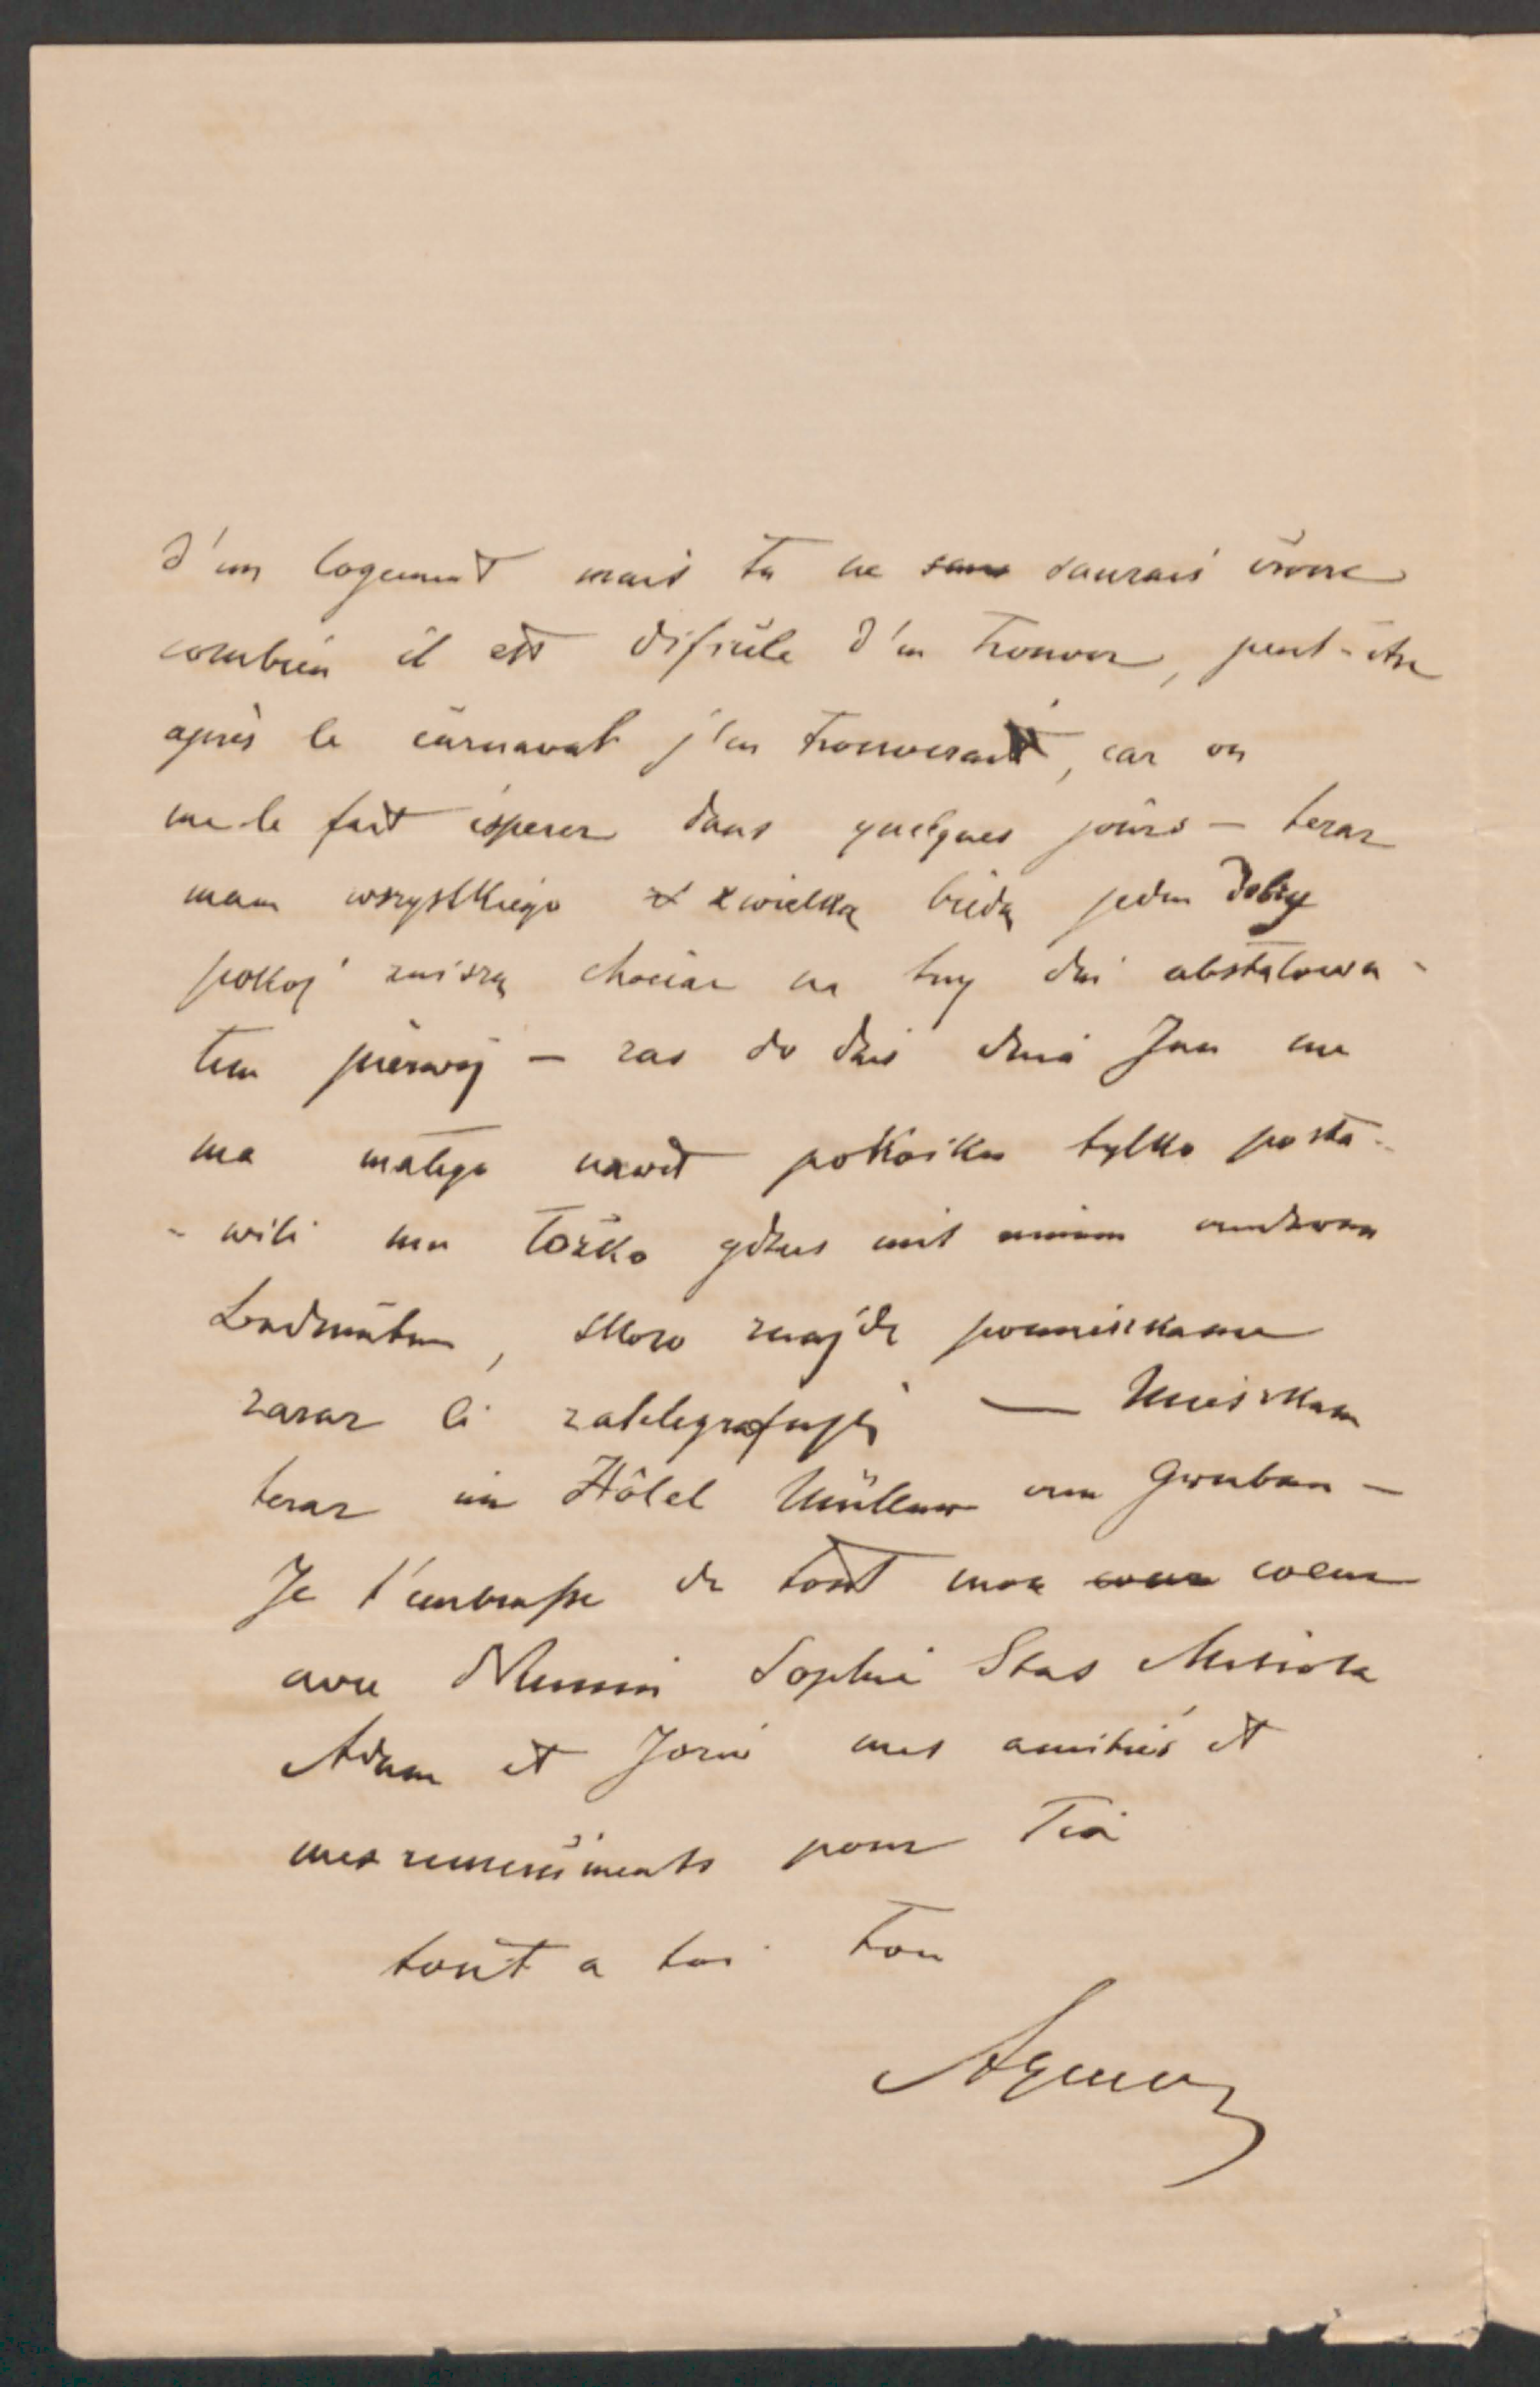 d'un logement mais tu ne saurais croire
combien il est dificile d'en trouver, peut-être
après le carnaval j'en trouverait, car on
me le fait ésperer dans quelques jours — teraz
mam wszystkiego z wielką biedą jeden dobry
pokoj chociaz na trzy dni obstalowa-
tem pierwej — zas do dzis dnia Jan nie
ma małego nawet pokoiku tylko posta-
-wili mu łóżko gdzies mit
, skoro znajdę pomieszkanie
zaraz Ci zatelegrafuję — Mieszkam
teraz im Hôtel Müller am Graben —
Je t'embrasse de tout mon coeur
avec Mimi Sophie Stas
Adam et Jozio mes amitiés et
mes remerciments pour Toi
tout a toi Ton